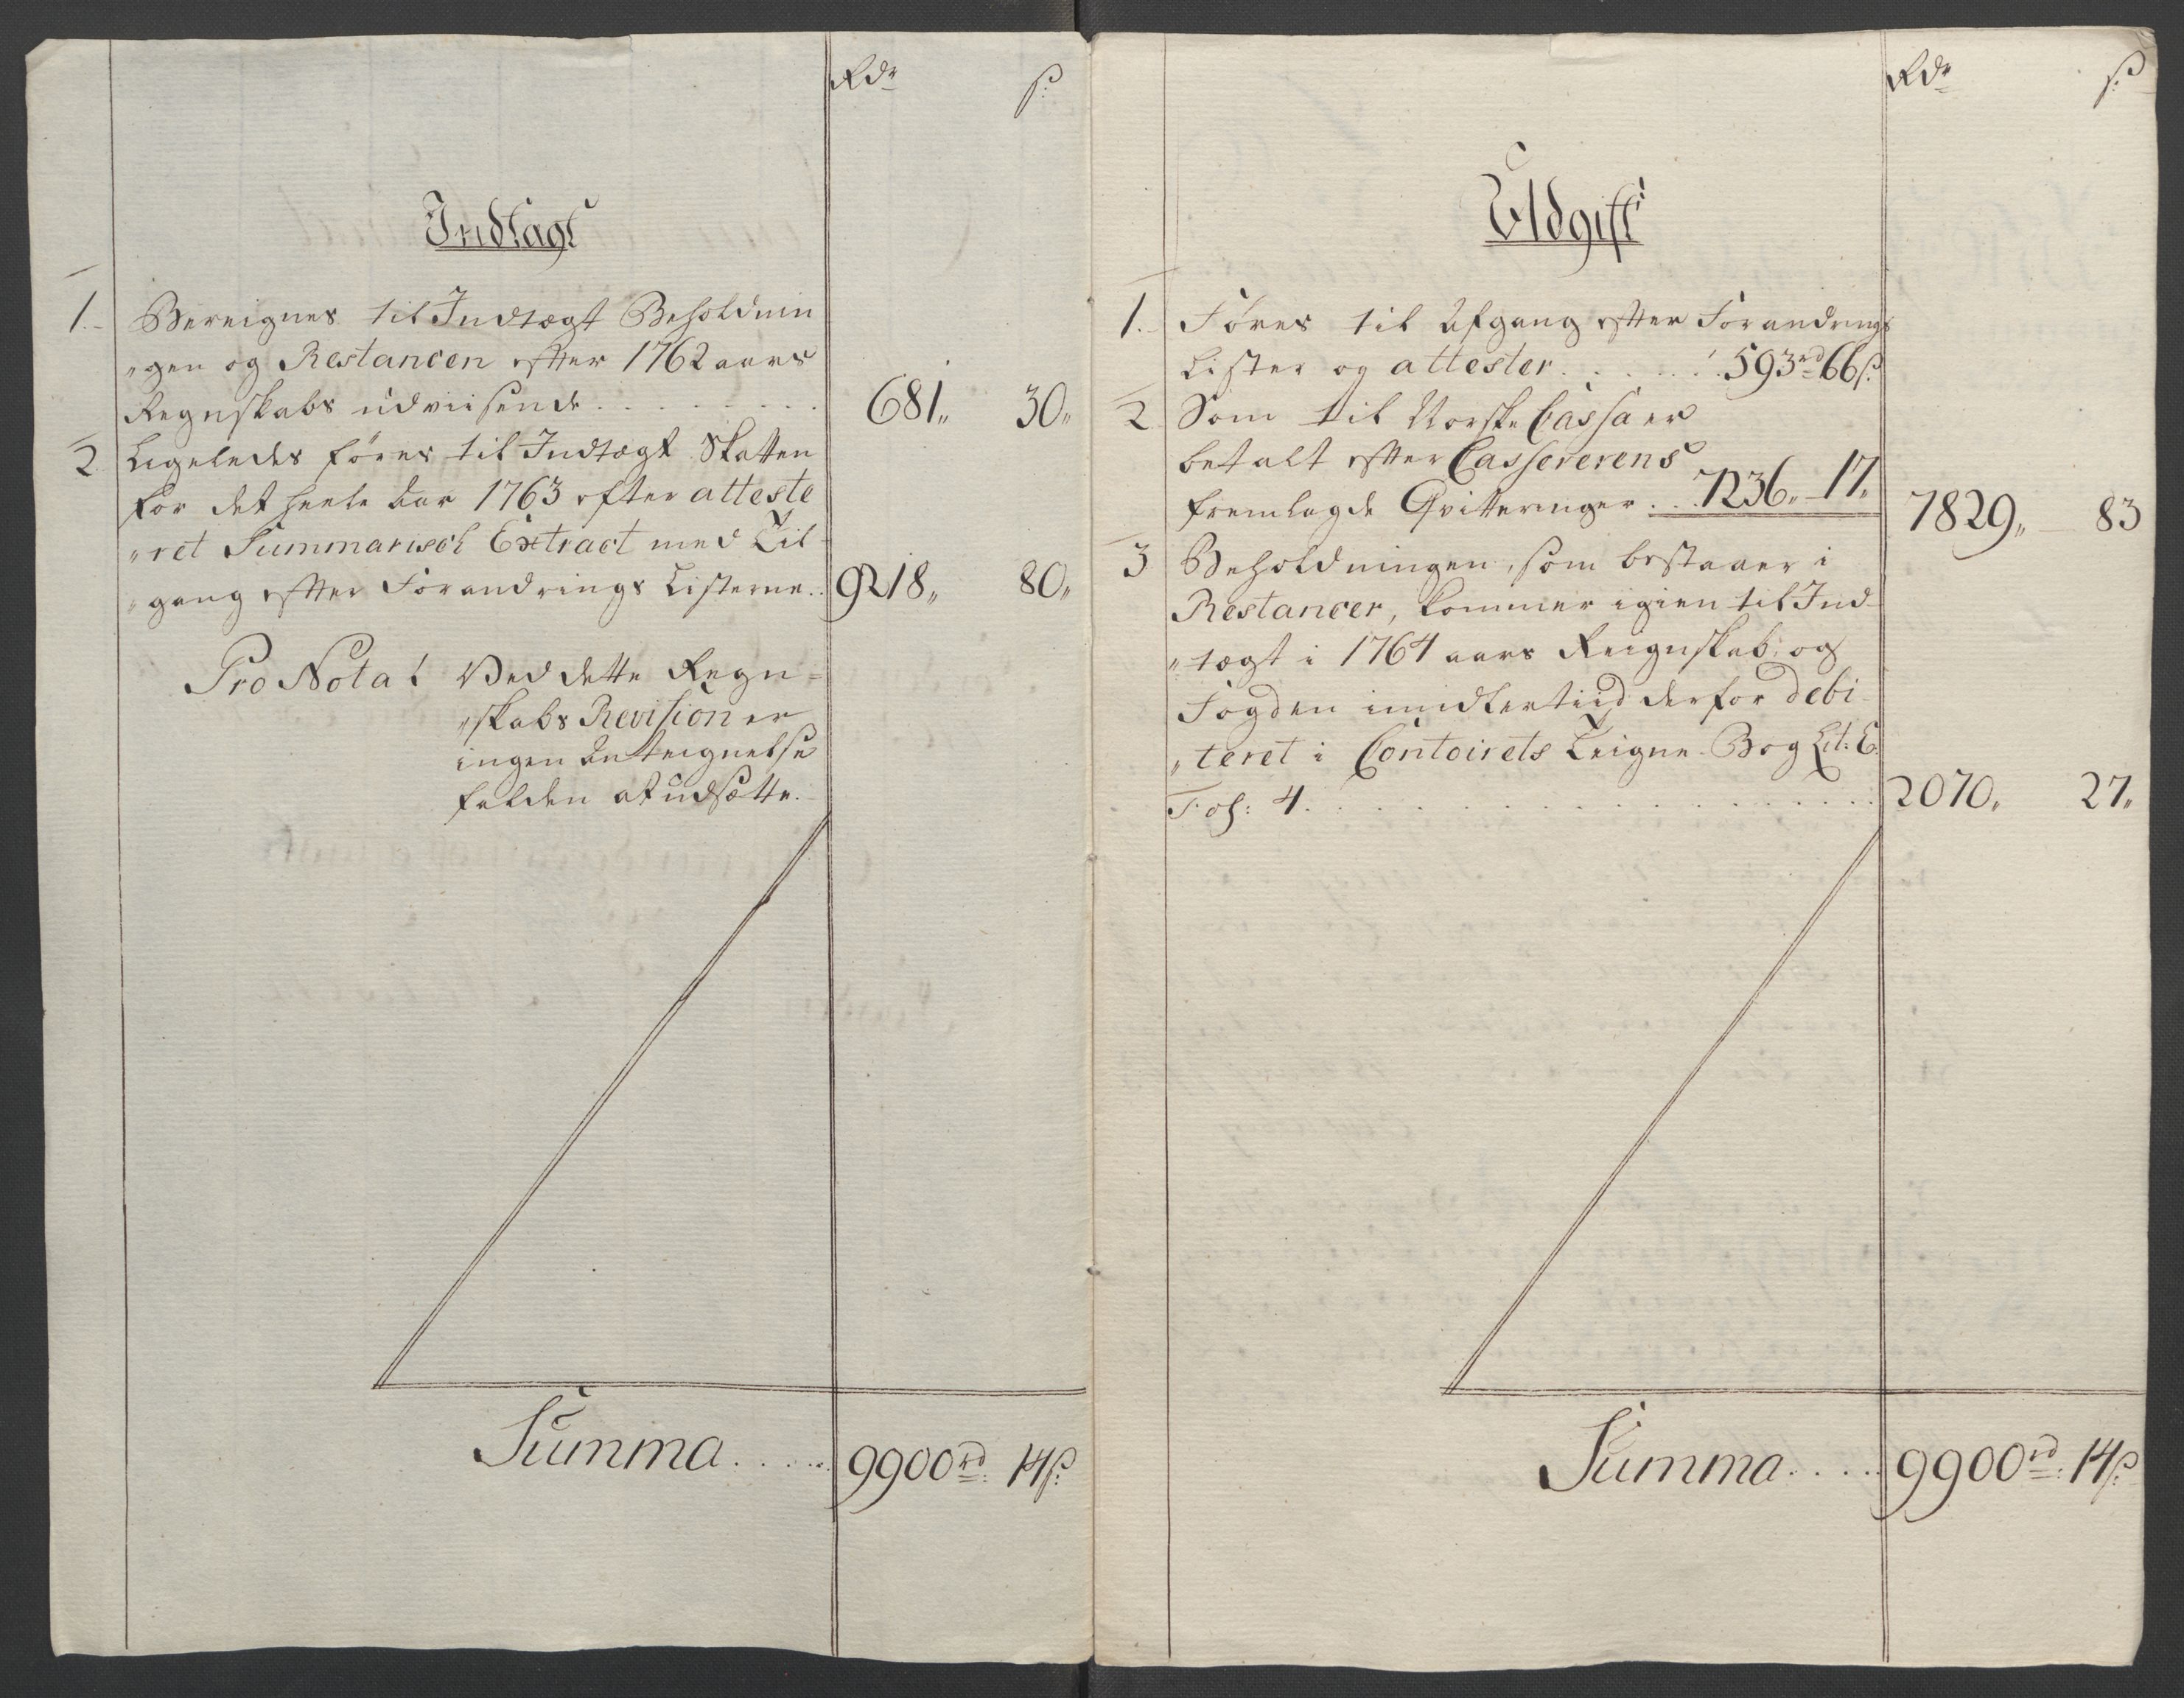 Rdr ß:
Indtægt
1. Bereignes til Indtægt Beholdnin
"gen og Restancen efter 1762 aars
Regnskabs udviisende . . . . . . . 681" 30"
2 Ligeledes föres til Indtægt Skatten
for det heele Aar 1763 efter atteste
"ret Summarisch Extract med Til-
"gang efter Forandrings Listerne. 9218" 80"
Pro Nota! Ved dette Regn-
"skabs Revision er
ingen Anteignelse
falden at udsætte.
Summa . . . . . 9900rd: 14ß:
Rdr ß:
Udgift
1. Föres til Afgang efter Forandrings
Lister og attester . . . . . . 593rd 66ß:
2 Som til Norske Cassa er
betalt efter Cassererens
fremlagde Qvitteringer . . 7236" 17" 7829" 83
3 Beholdningen, som bestaaer i
Restancer, kommer igien til Ind-
"tægt i 1764 aars Reignskab, og
Fogden imidlertiid derfor debi-
"teret i Contoirets Teigne-Bog Lit: E.
Fol: 4. . . . . . . . . . . . 2070" 27"
Summa . . . . . 9900rd: 14ß: